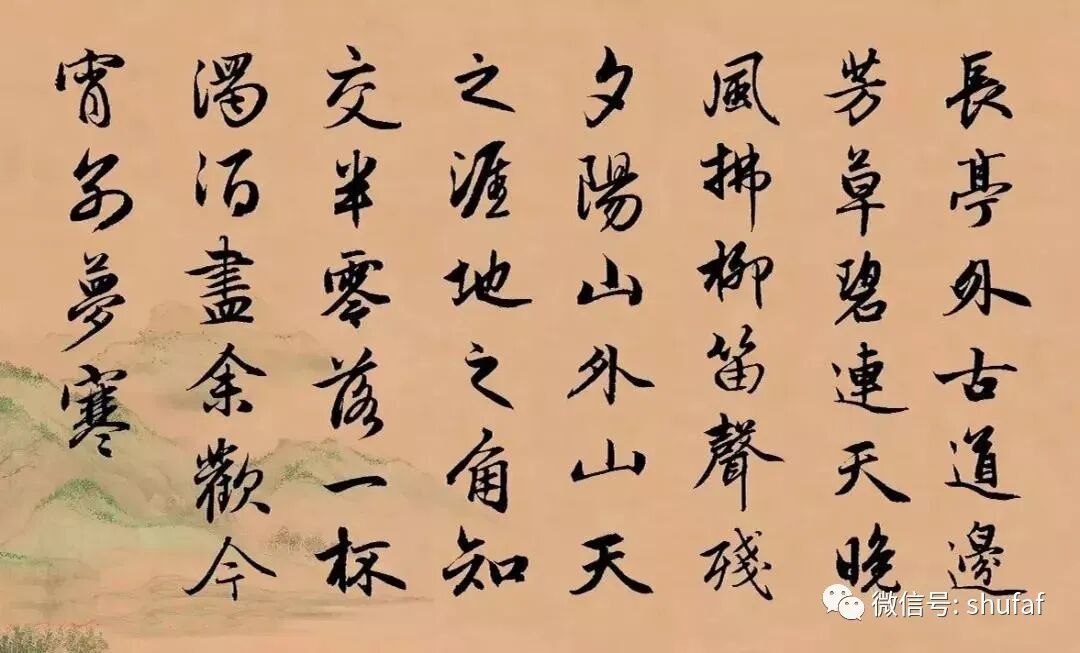 長亭外古道邊
芳草碧連天晚
風拂柳笛聲殘
夕陽山外山天
之涯地之角知
交半零落一杯
濁酒盡余歡今
宵別夢寒
微信号: shufaf